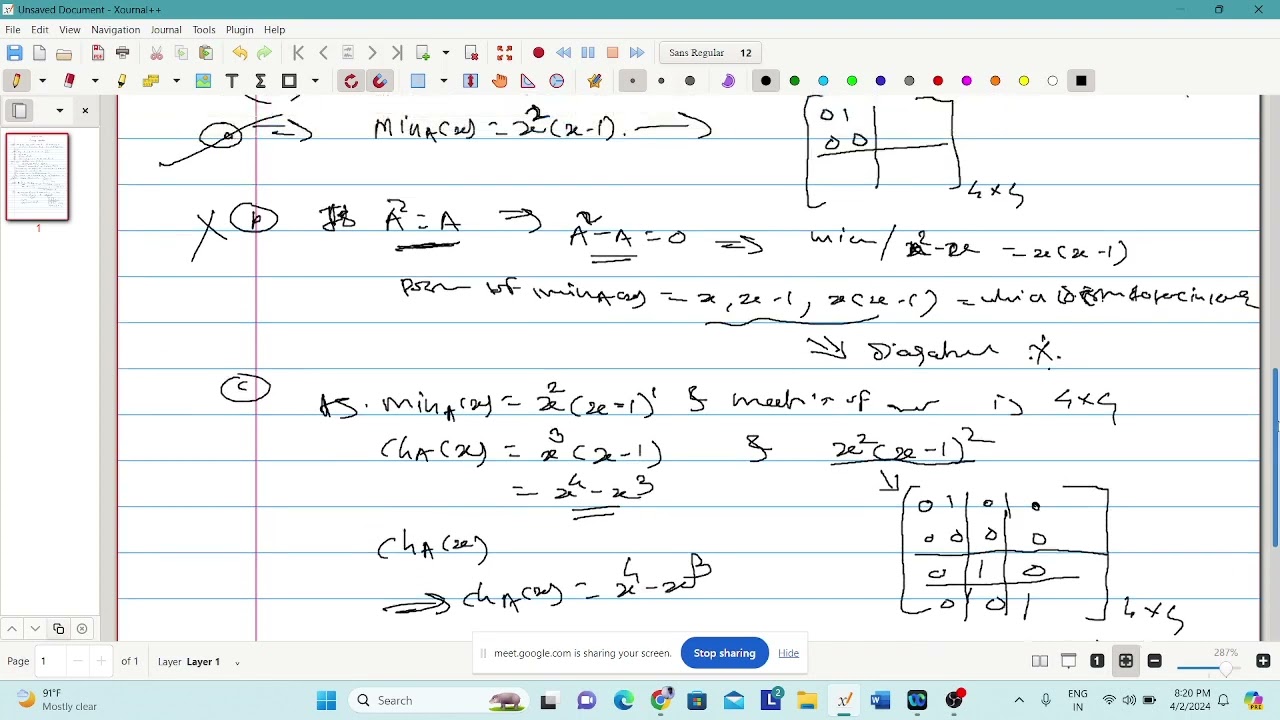 Unsaved Document - Xournal++
File Edit View Navigation Journal Tools Plugin Help
Sans Regular 12
1
Min_A(x) = x²(x-1). →
0 1
0 0
4×4
A² = A ⇒ A² - A = 0 ⇒ min / x² - x = x(x-1)
of min_A(x) = x, x-1, x(x-1) =
X.
C
AS. min_A(x) = x²(x-1)¹ & of is 4×4
Ch_A(x) = x³(x-1) & x²(x-1)²
= x⁴ - x³
0 1 0 0
0 0 0 0
0 1 0
0 0 1
4×4
Ch_A(x)
⇒ Ch_A(x) = x⁴ - x³
meet.google.com is sharing your screen. Stop sharing Hide
Page 1 of 1 Layer Layer 1
287%
91°F
Mostly clear
Search
2
ENG
IN
8:20 PM
4/2/2024